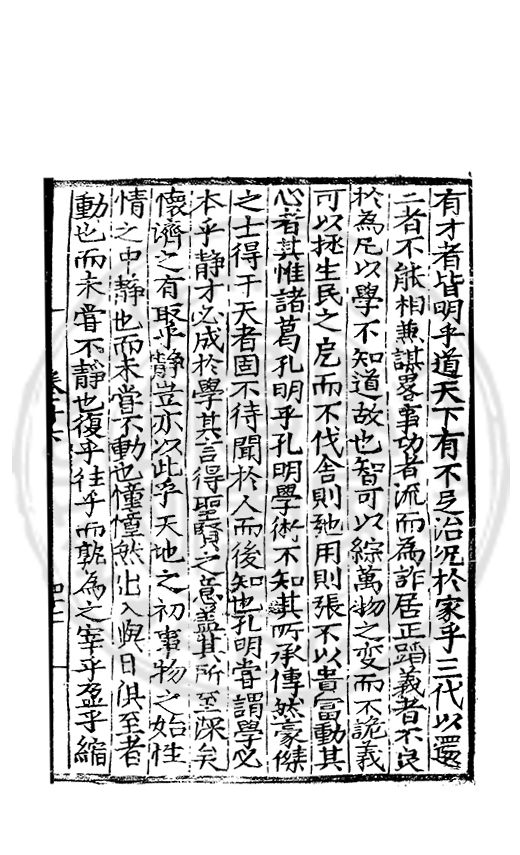 有才者皆明乎道天下有不足治況於家乎三代以還
二者不能相兼謀畧事功者流而為詐居正蹈義者不足
於為尼以學不知道故也智可以綜萬物之变而不詭義
可以拯生民之危而不伐舍則弛用則張不以貴富動其
心者其惟諸葛孔明乎孔明學術不知其所承傳然豪傑
之士得于天者固不待聞於人而後知也孔明嘗謂學必
本乎静才必成於學其言得聖賢之意盖其所至深矣
懷濟之有取乎静豈亦以此乎天地之初事物之始性
情之中静也而未甞不動也憧憧然出入與日俱至者
動也而未甞不静也復乎往乎而孰為之宰乎盈乎縮